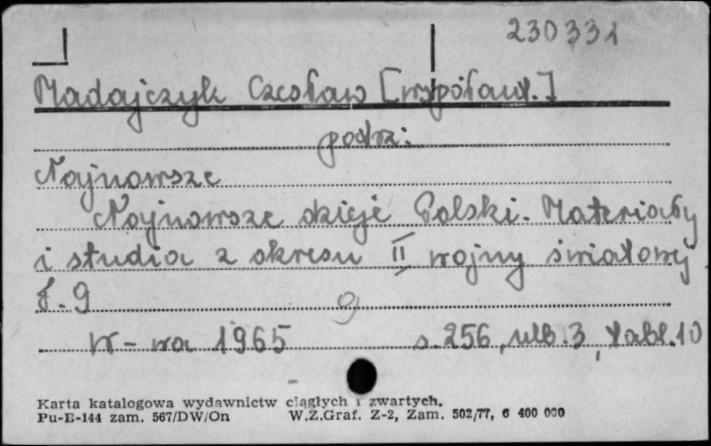 230331
Madajczyk Czesław [współaut.]
podrz:
Najnowsze
Najnowsze dzieje Polski. Materiały
i studia z okresu II wojny światowej
t. 9
9
W-wa 1965 s. 256, nlb. 3, tabl. 10
Karta katalogowa wydawnictw ciągłych i zwartych.
Pu-E-144 zam. 567/DW/On W.Z.Graf. Z-2, Zam. 502/77, 6 400 000